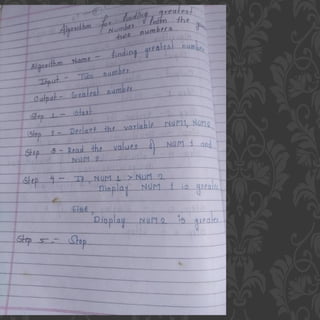 Algorithm for finding greatest
Number from the given
two numbers
Algorithm Name - finding greatest number
Input - Two number
Output - Greatest number
Step 1 - Start
Step 2 - Declare the variable NUM1, NUM2
Step 3 - Read the values of NUM 1 and
NUM 2
Step 4 - If, NUM 1 > NUM 2
Display NUM 1 is greater
Else,
Display NUM 2 is greater
Step 5 - Stop